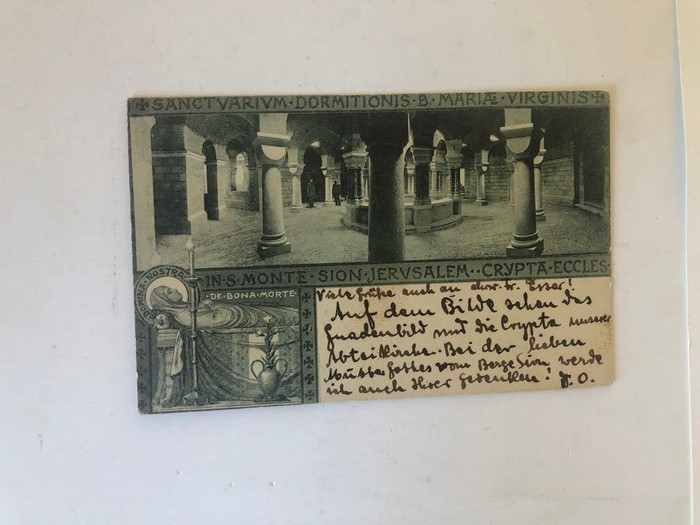 SANCTVARIVM·DORMITIONIS·B·MARIÆ·VIRGINIS
IN·S·MONTE·SION·JERVSALEM··CRYPTA·ECCLES·
DOMINA·NOSTRA
·DE·BONA·MORTE·
Viele Grüße auch an ehrw. Fr.
Auf dem Bilde sehen das
Gnadenbild und die Crypta unserer
Abteikirche. Bei der lieben
Mutter Gottes vom Berge Sion werde
ich auch Ihrer gedenken!
O.